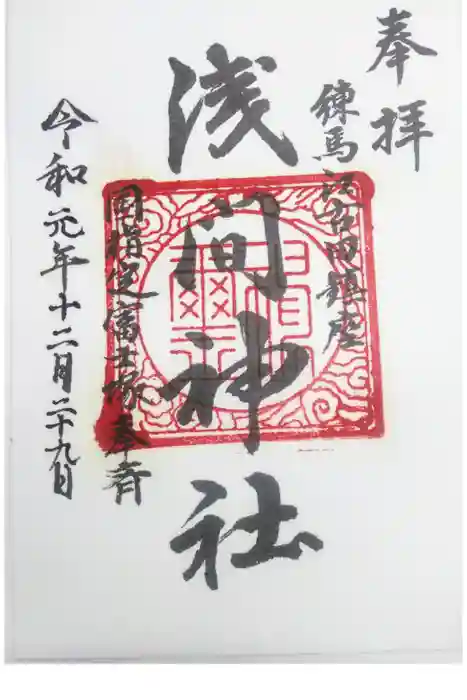 奉拝
練馬江古田鎮座
浅間神社
国指定富士塚奉斎
令和元年十二月二十九日